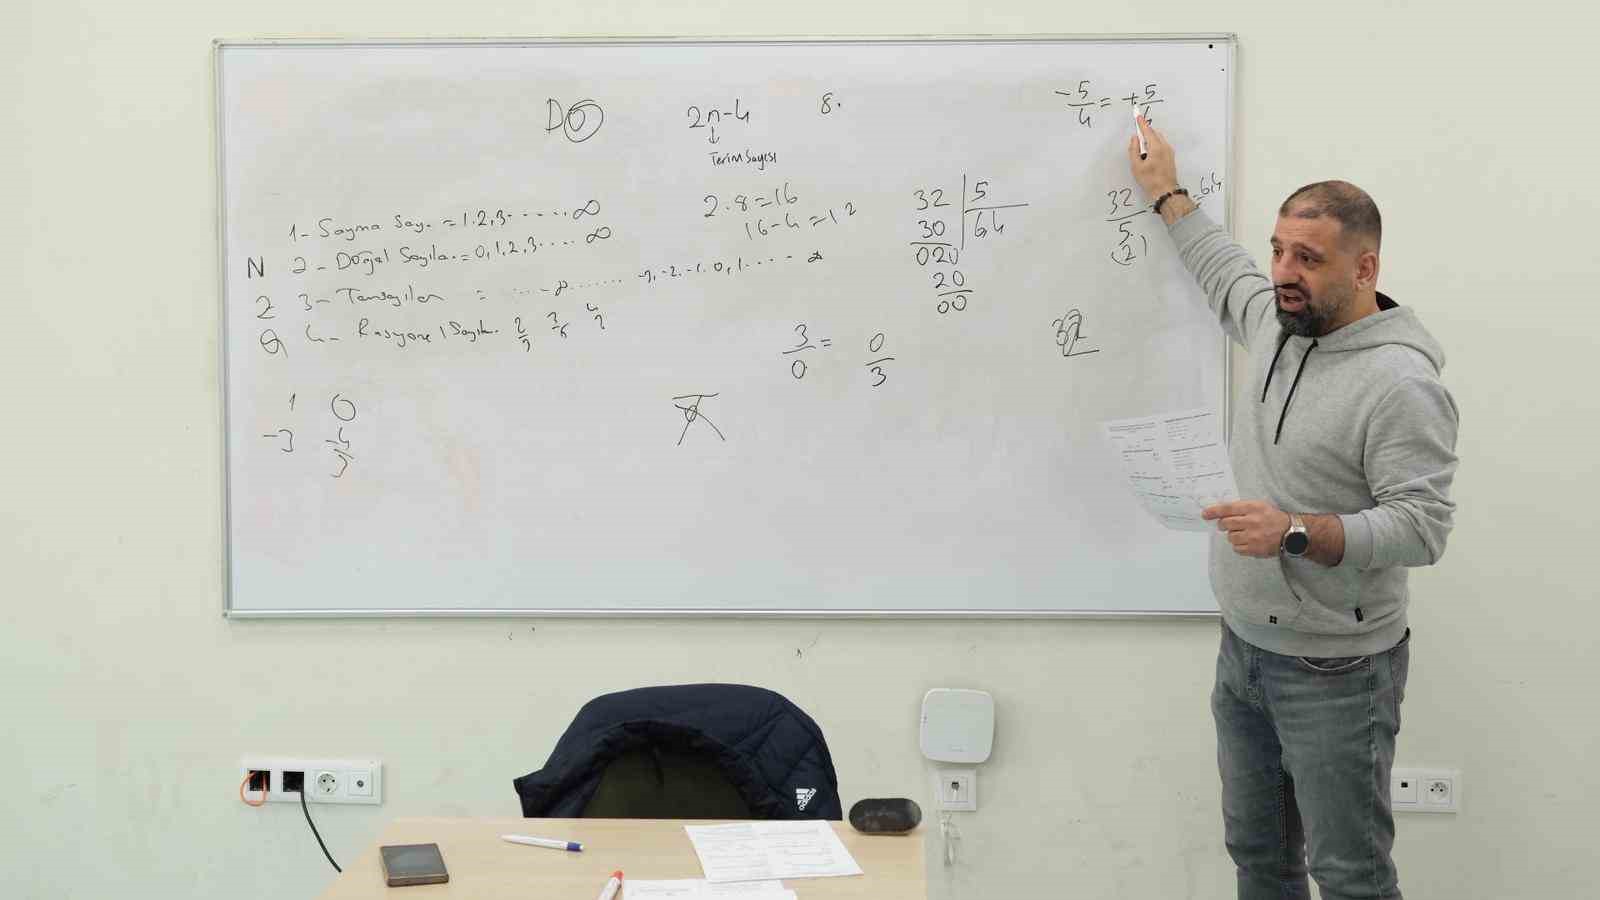 D6
2n-4
↓
Terim Sayısı
8.
-5/4 = +5/4
1- Sayma Say. = 1.2,3.....∞
N 2- Doğal Sayıla. = 0,1,2,3.... ∞
Z 3- Tamsayılar = ... -∞ ....... -3,-2,-1,0,1..... ∞
Q 4- Rasyonel Sayıla.
2.8=16
16-4=12
32 | 5
30 | 64
020
20
00
32/5 = 64
(2)
3/0 = 0/3
32
1 0
-3 -4/3
adidas